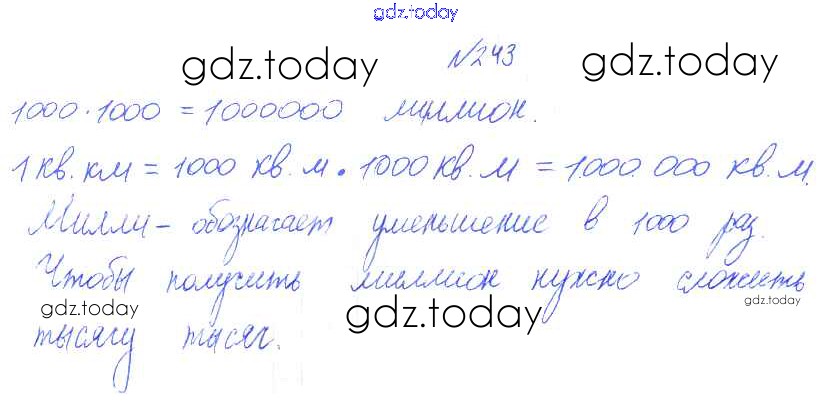 gdz.today
№243
gdz.today gdz.today
1000·1000 = 1000000 миллион.
1 кв. км = 1000 кв. м · 1000 кв. м = 1000 000 кв. м.
Милли - обозначает уменьшение в 1000 раз.
Чтобы получить миллион нужно сложить
gdz.today gdz.today gdz.today
тысячу тысяч.